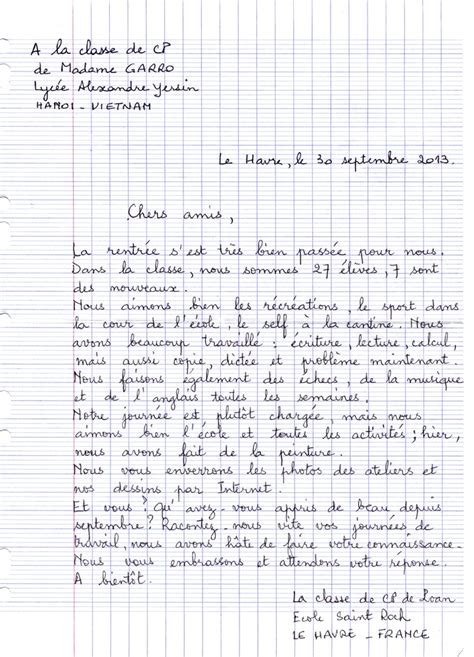 A la classe de CP
de Madame GARRO
Lycée Alexandre Yersin
HANOI - VIETNAM
Le Havre, le 30 septembre 2013.
Chers amis,
La rentrée s'est très bien passée pour nous.
Dans la classe, nous sommes 27 élèves, 7 sont
des nouveaux.
Nous aimons bien les récréations, le sport dans
la cour de l'école, le self à la cantine. Nous
avons beaucoup travaillé : écriture, lecture, calcul,
mais aussi copie, dictée et problème maintenant.
Nous faisons également des échecs, de la musique
et de l'anglais toutes les semaines.
Notre journée est plutôt chargée, mais nous
aimons bien l'école et toutes les activités ; hier,
nous avons fait de la peinture.
Nous vous enverrons les photos des ateliers et
nos dessins par Internet.
Et vous ? Qu'avez-vous appris de beau depuis
septembre ? Racontez-nous vite vos journées de
travail, nous avons hâte de faire votre connaissance.
Nous vous embrassons et attendons votre réponse.
A bientôt.
La classe de CP de Loan
Ecole Saint Roch
LE HAVRE - FRANCE